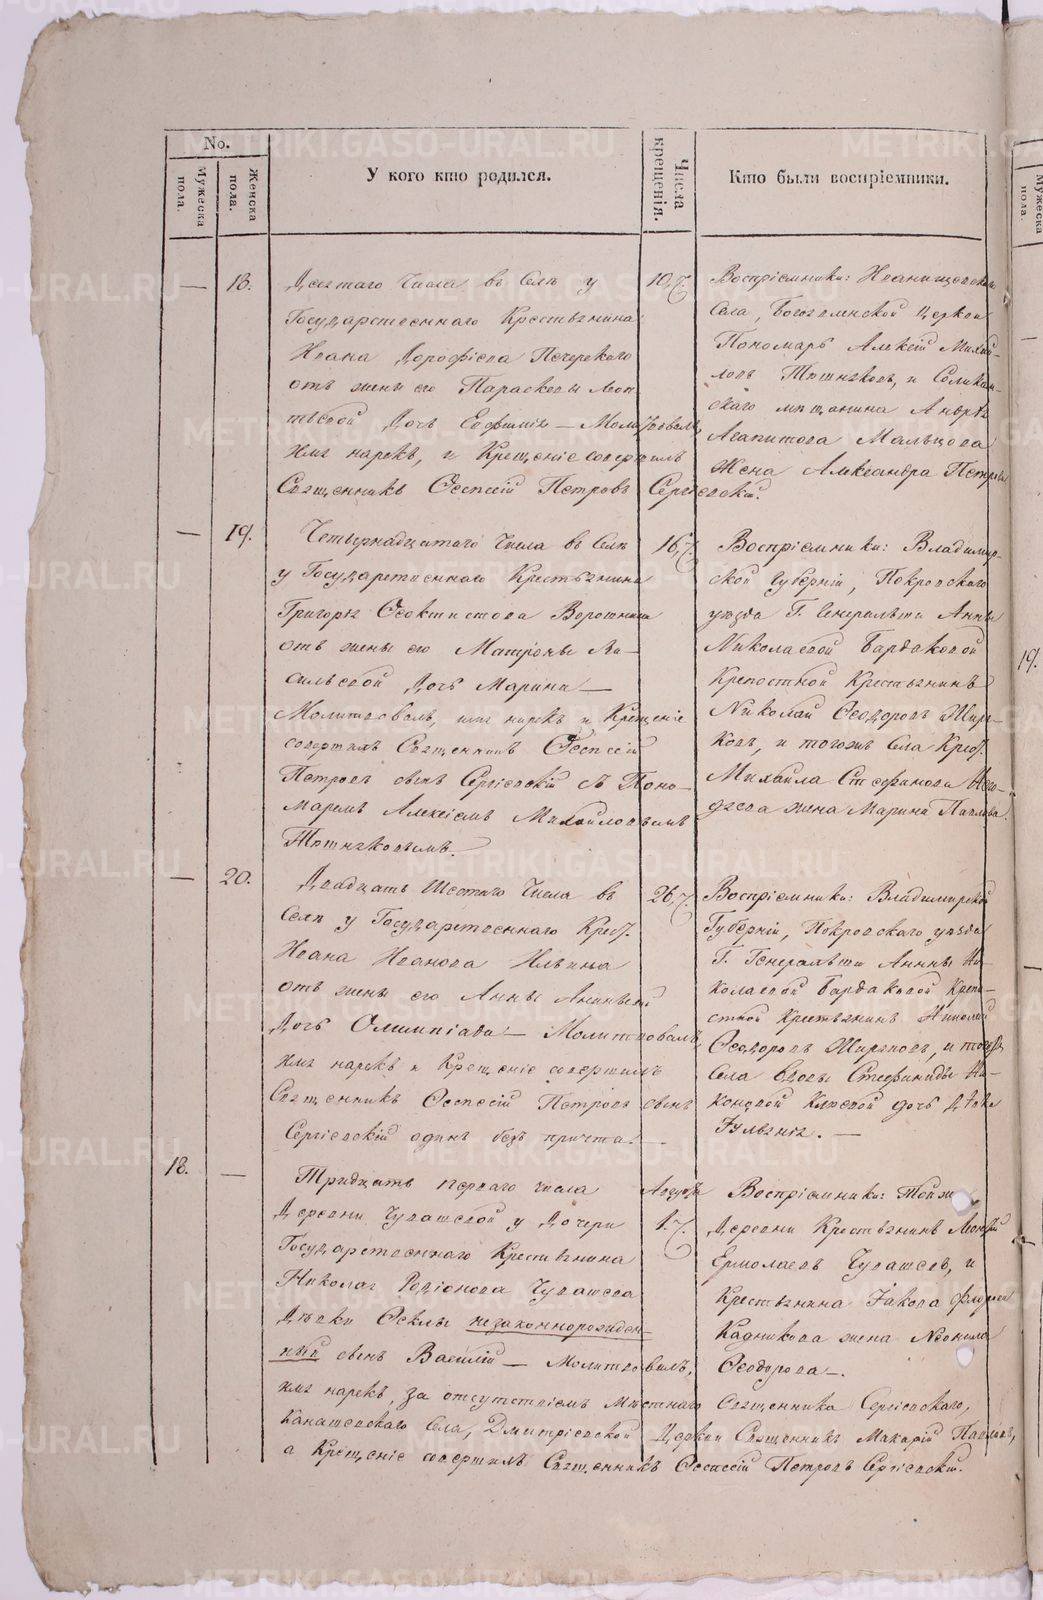 No.
Мужеска пола.
Женска пола.
У кого кто родился.
Числа крещенія.
Кто были воспріемники.
18.
Десятаго Числа въ Селѣ у
Государственнаго Крестьянина
Ивана Дорофѣева Печерскаго
отъ жены его Параскевы Леон
тьевой Дочь Евфимія — Молитвовалъ,
имя нарекъ, и Крещеніе совершилъ
Священникъ Евсевій Петровъ Сергіевскій.
10.
Воспріемники:
Села, Богоявленской Церкви
Пономарь Алексій Михай
ловъ Тютняковъ, и Соликам-
скаго мѣщанина Андрея
Агапитова Мальцова
Жена Александра Петрова
19.
Четырнадцатаго Числа въ Селѣ
у Государственнаго Крестьянина
Григорія Ѳеоктистова
отъ жены его Матроны Ва-
сильевой Дочь Марина —
Молитвовалъ, имя нарекъ и Крещеніе
совершилъ Священникъ Евсевій
Петровъ сынъ Сергіевскій съ Поно-
маремъ Алексіемъ Михайловымъ
Тютняковымъ.
16.
Воспріемники: Владимир-
ской Губерніи, Покровскаго
уѣзда Г. Генеральши Анны
Николаевой Бардаковой
Крепостной Крестьянинъ
Николай Ѳеодоровъ Жиря-
ковъ, и тогожъ Села Крест.
Михайла Стефанова
жена Марина Павлова.
20.
Двадцать Шестаго Числа въ
Селѣ у Государственнаго Крест.
Ивана Иванова Ильина
отъ жены его Анны Ананьевой
Дочь Олимпіада — Молитвовалъ,
имя нарекъ и Крещеніе совершилъ
Священникъ Евсевій Петровъ сынъ
Сергіевскій одинъ безъ причта. —
26.
Воспріемники: Владимирской
Губерніи, Покровскаго уѣзда
Г. Генеральши Анны Ни-
колаевой Бардаковой Крепо-
стной Крестьянинъ Николай
Ѳеодоровъ Жиряковъ, и тогожъ
Села вдовы Стефаниды Ни-
коновой дочь Дѣвка
Іуліанія. —
18.
Тридцать перваго числа
Деревни Чувашевой у Дочери
Государственнаго Крестьянина
Николая Родіонова Чувашева
Дѣвки Ѳеклы незаконнорожден-
ный сынъ Василій — Молитвовалъ,
имя нарекъ, за отсутствіемъ Мѣстнаго Священника Сергіевскаго,
Канашевскаго Села, Дмитріевской Церкви Священникъ Макарій Павловъ,
а Крещеніе совершилъ Священникъ Евсевій Петровъ Сергіевскій.
1.
Воспріемники: Тойже
Деревни Крестьянинъ Леонтій
Ермолаевъ Чувашевъ, и
Крестьянина Іакова
Кадникова жена Неонила
Ѳеодорова —.
Мужеска пола.
19.
METRIKI.GASO-URAL.RU